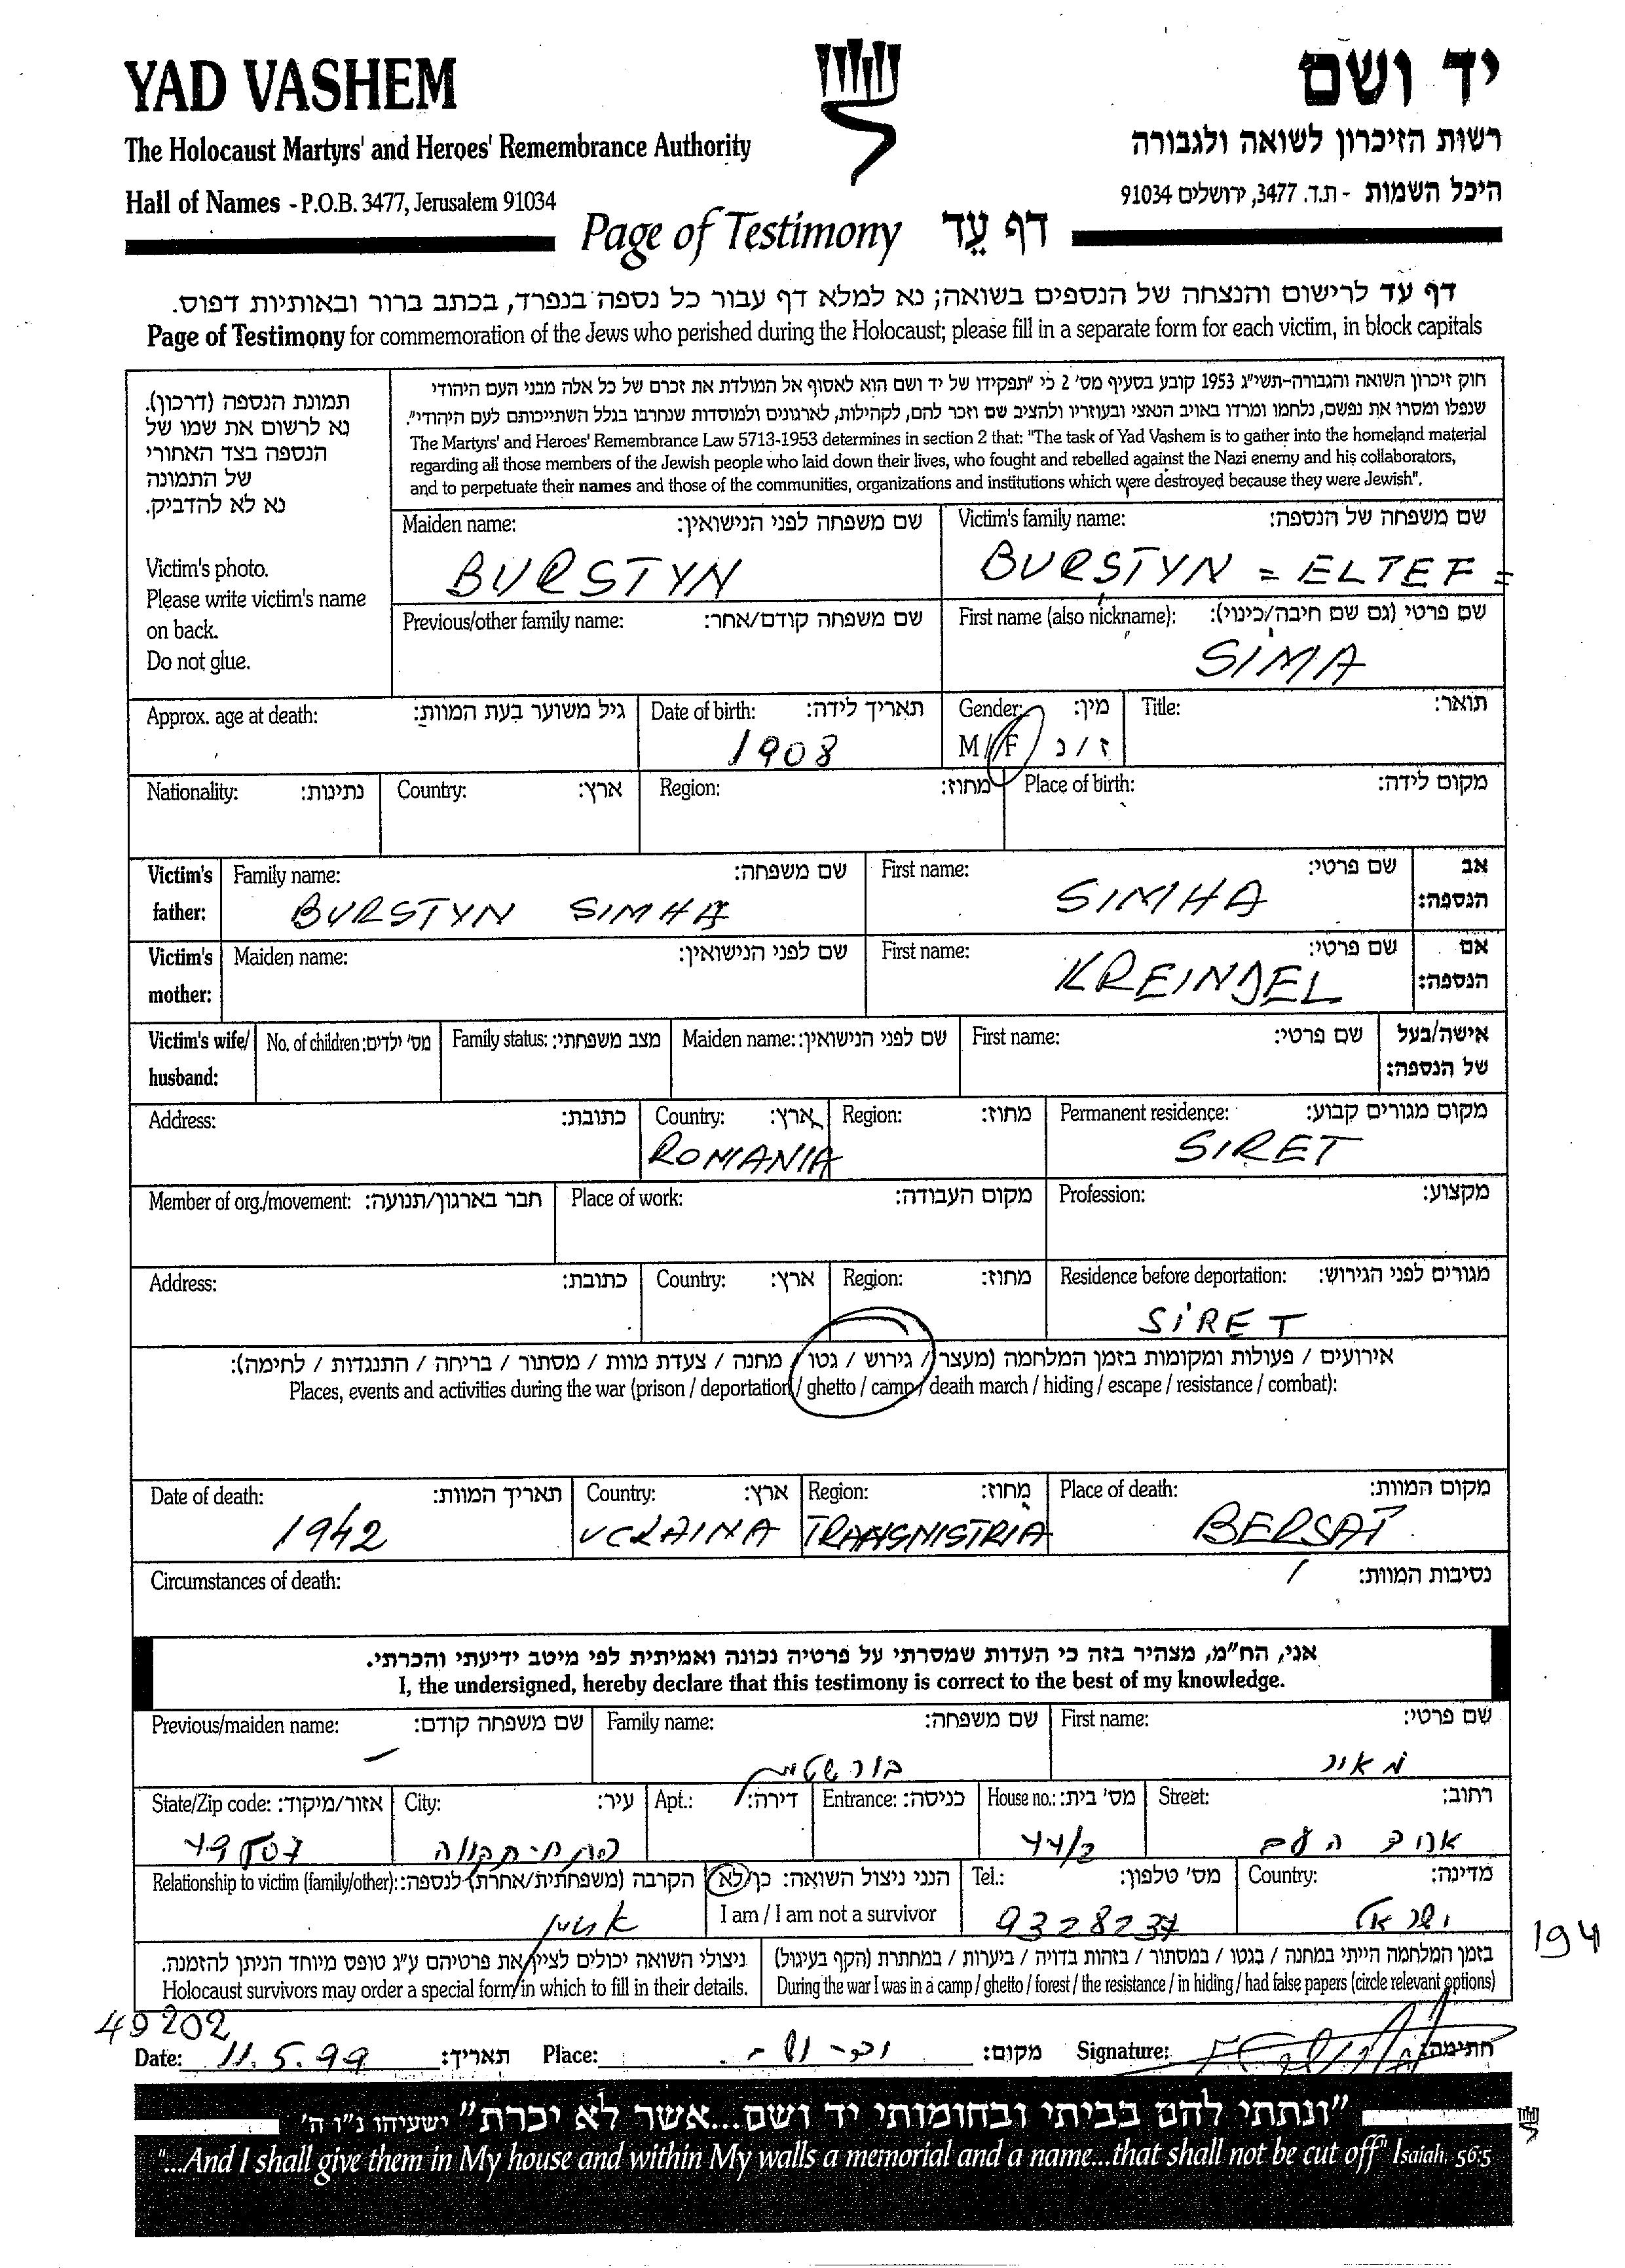 YAD VASHEM
יד ושם
The Holocaust Martyrs' and Heroes' Remembrance Authority
רשות הזיכרון לשואה ולגבורה
Hall of Names - P.O.B. 3477, Jerusalem 91034
היכל השמות - ת.ד. 3477, ירושלים 91034
Page of Testimony דף עֵד
דף עד לרישום והנצחה של הנספים בשואה; נא למלא דף עבור כל נספה בנפרד, בכתב ברור ובאותיות דפוס.
Page of Testimony for commemoration of the Jews who perished during the Holocaust; please fill in a separate form for each victim, in block capitals
תמונת הנספה (דרכון).
נא לרשום את שמו של
הנספה בצד האחורי
של התמונה
נא לא להדביק.
Victim's photo.
Please write victim's name
on back.
Do not glue.
חוק זיכרון השואה והגבורה-תשי"ג 1953 קובע בסעיף מס' 2 כי "תפקידו של יד ושם הוא לאסוף אל המולדת את זכרם של כל אלה מבני העם היהודי
שנפלו ומסרו את נפשם, נלחמו ומרדו באויב הנאצי ובעוזריו ולהציב שם וזכר להם, לקהילות, לארגונים ולמוסדות שנחרבו בגלל השתייכותם לעם היהודי".
The Martyrs' and Heroes' Remembrance Law 5713-1953 determines in section 2 that: "The task of Yad Vashem is to gather into the homeland material
regarding all those members of the Jewish people who laid down their lives, who fought and rebelled against the Nazi enemy and his collaborators,
and to perpetuate their names and those of the communities, organizations and institutions which were destroyed because they were Jewish".
Maiden name: שם משפחה לפני הנישואין: Victim's family name: שם משפחה של הנספה:
BURSTYN BURSTYN = ELTEF =
Previous/other family name: שם משפחה קודם/אחר: First name (also nickname): שם פרטי (גם שם חיבה/כינוי):
SIMA
Approx. age at death: גיל משוער בעת המוות: Date of birth: תאריך לידה: Gender: מין: Title: תואר:
1908 M / F ז / נ
Nationality: נתינות: Country: ארץ: Region: מחוז: Place of birth: מקום לידה:
Victim's father: Family name: שם משפחה: First name: שם פרטי: אב הנספה:
BURSTYN SIMHA SIMHA
Victim's mother: Maiden name: שם לפני הנישואין: First name: שם פרטי: אם הנספה:
KREINDEL
Victim's wife/ husband: No. of children: מס' ילדים: Family status: מצב משפחתי: Maiden name: שם לפני הנישואין: First name: שם פרטי: אישה/בעל של הנספה:
Address: כתובת: Country: ארץ: Region: מחוז: Permanent residence: מקום מגורים קבוע:
ROMANIA SIRET
Member of org./movement: חבר בארגון/תנועה: Place of work: מקום העבודה: Profession: מקצוע:
Address: כתובת: Country: ארץ: Region: מחוז: Residence before deportation: מגורים לפני הגירוש:
SIRET
אירועים / פעולות ומקומות בזמן המלחמה (מעצר / גירוש / גטו / מחנה / צעדת מוות / מסתור / בריחה / התנגדות / לחימה):
Places, events and activities during the war (prison / deportation / ghetto / camp / death march / hiding / escape / resistance / combat):
Date of death: תאריך המוות: Country: ארץ: Region: מחוז: Place of death: מקום המוות:
1942 UCRAINA TRANSNISTRIA BERSAT
Circumstances of death: נסיבות המוות:
אני, הח"מ, מצהיר בזה כי העדות שמסרתי על פרטיה נכונה ואמיתית לפי מיטב ידיעתי והכרתי.
I, the undersigned, hereby declare that this testimony is correct to the best of my knowledge.
Previous/maiden name: שם משפחה קודם: Family name: שם משפחה: First name: שם פרטי:
בורשטיין מאיר
State/Zip code: אזור/מיקוד: City: עיר: Apt.: דירה: Entrance: כניסה: House no.: מס' בית: Street: רחוב:
פתח-תקווה 44/2 העם
Relationship to victim (family/other): הקרבה (משפחתית/אחרת) לנספה: הנני ניצול השואה: כן/לא Tel.: מס' טלפון: Country: מדינה:
I am / I am not a survivor
אחיין 9328237 ישראל
194
ניצולי השואה יכולים לציין את פרטיהם ע"ג טופס מיוחד הניתן להזמנה.
Holocaust survivors may order a special form in which to fill in their details.
בזמן המלחמה הייתי במחנה / בגטו / במסתור / בזהות בדויה / ביערות / במחתרת (הקף בעיגול)
During the war I was in a camp / ghetto / forest / the resistance / in hiding / had false papers (circle relevant options)
49202
Date: 11.5.99 תאריך: Place: מקום: Signature: חתימה:
"ונתתי להם בביתי ובחומותי יד ושם...אשר לא יכרת" ישעיהו נ"ו ה'
"...And I shall give them in My house and within My walls a memorial and a name...that shall not be cut off" Isaiah, 56:5